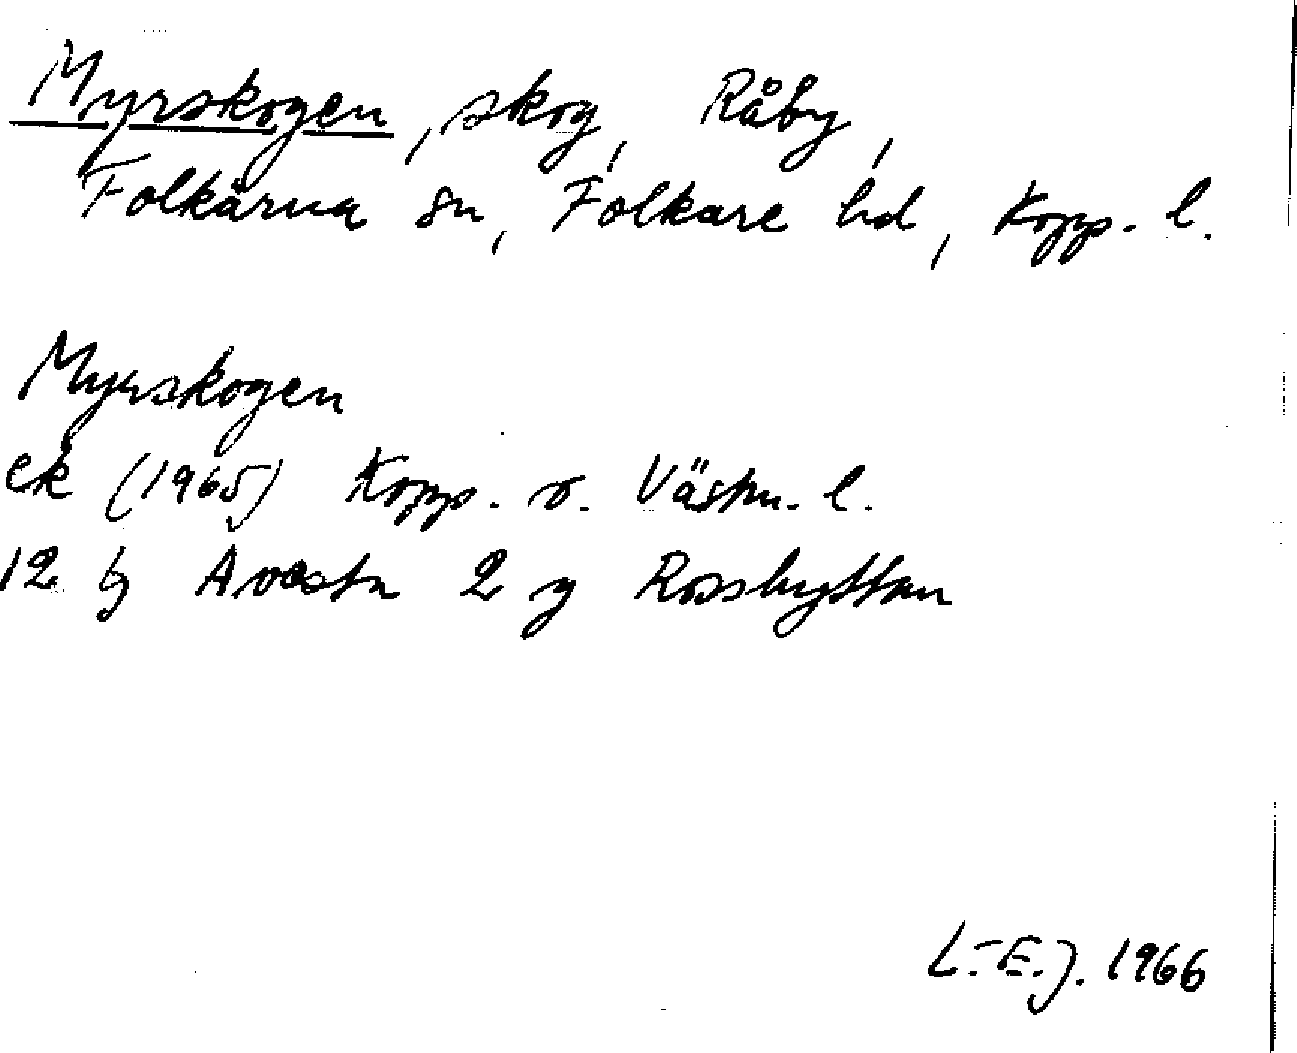 Myrskogen, skog, Råby,
Folkärna sn, Folkare hd, Kopp. l.
Myrskogen
ek (1965) Kopp. o. Västm. l.
12 G Avesta 2 g Rosshyttan
L.-E.J. 1966